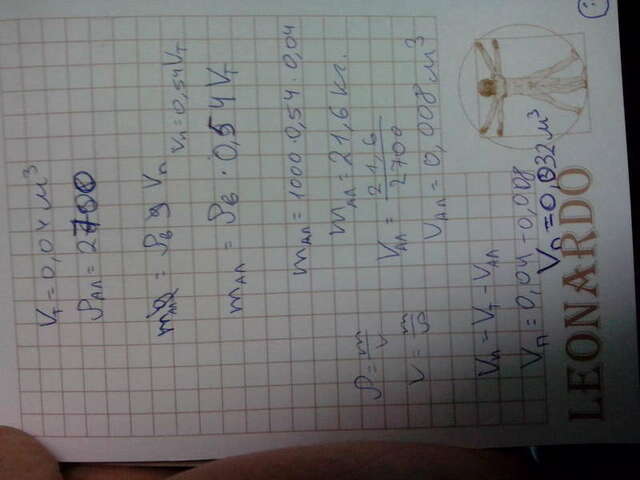 Vт = 0,04 м³
ρал = 2700
mал g = ρв g Vп
Vп = 0,54Vт
mал = ρв · 0,54Vт
mал = 1000·0,54·0,04
mал = 21,6 кг.
ρ = m/V
Vал = 21,6/2700
V = m/ρ
Vал = 0,008 м³
Vп = Vт - Vал
Vп = 0,04 - 0,008
Vп = 0,032 м³
LEONARDO